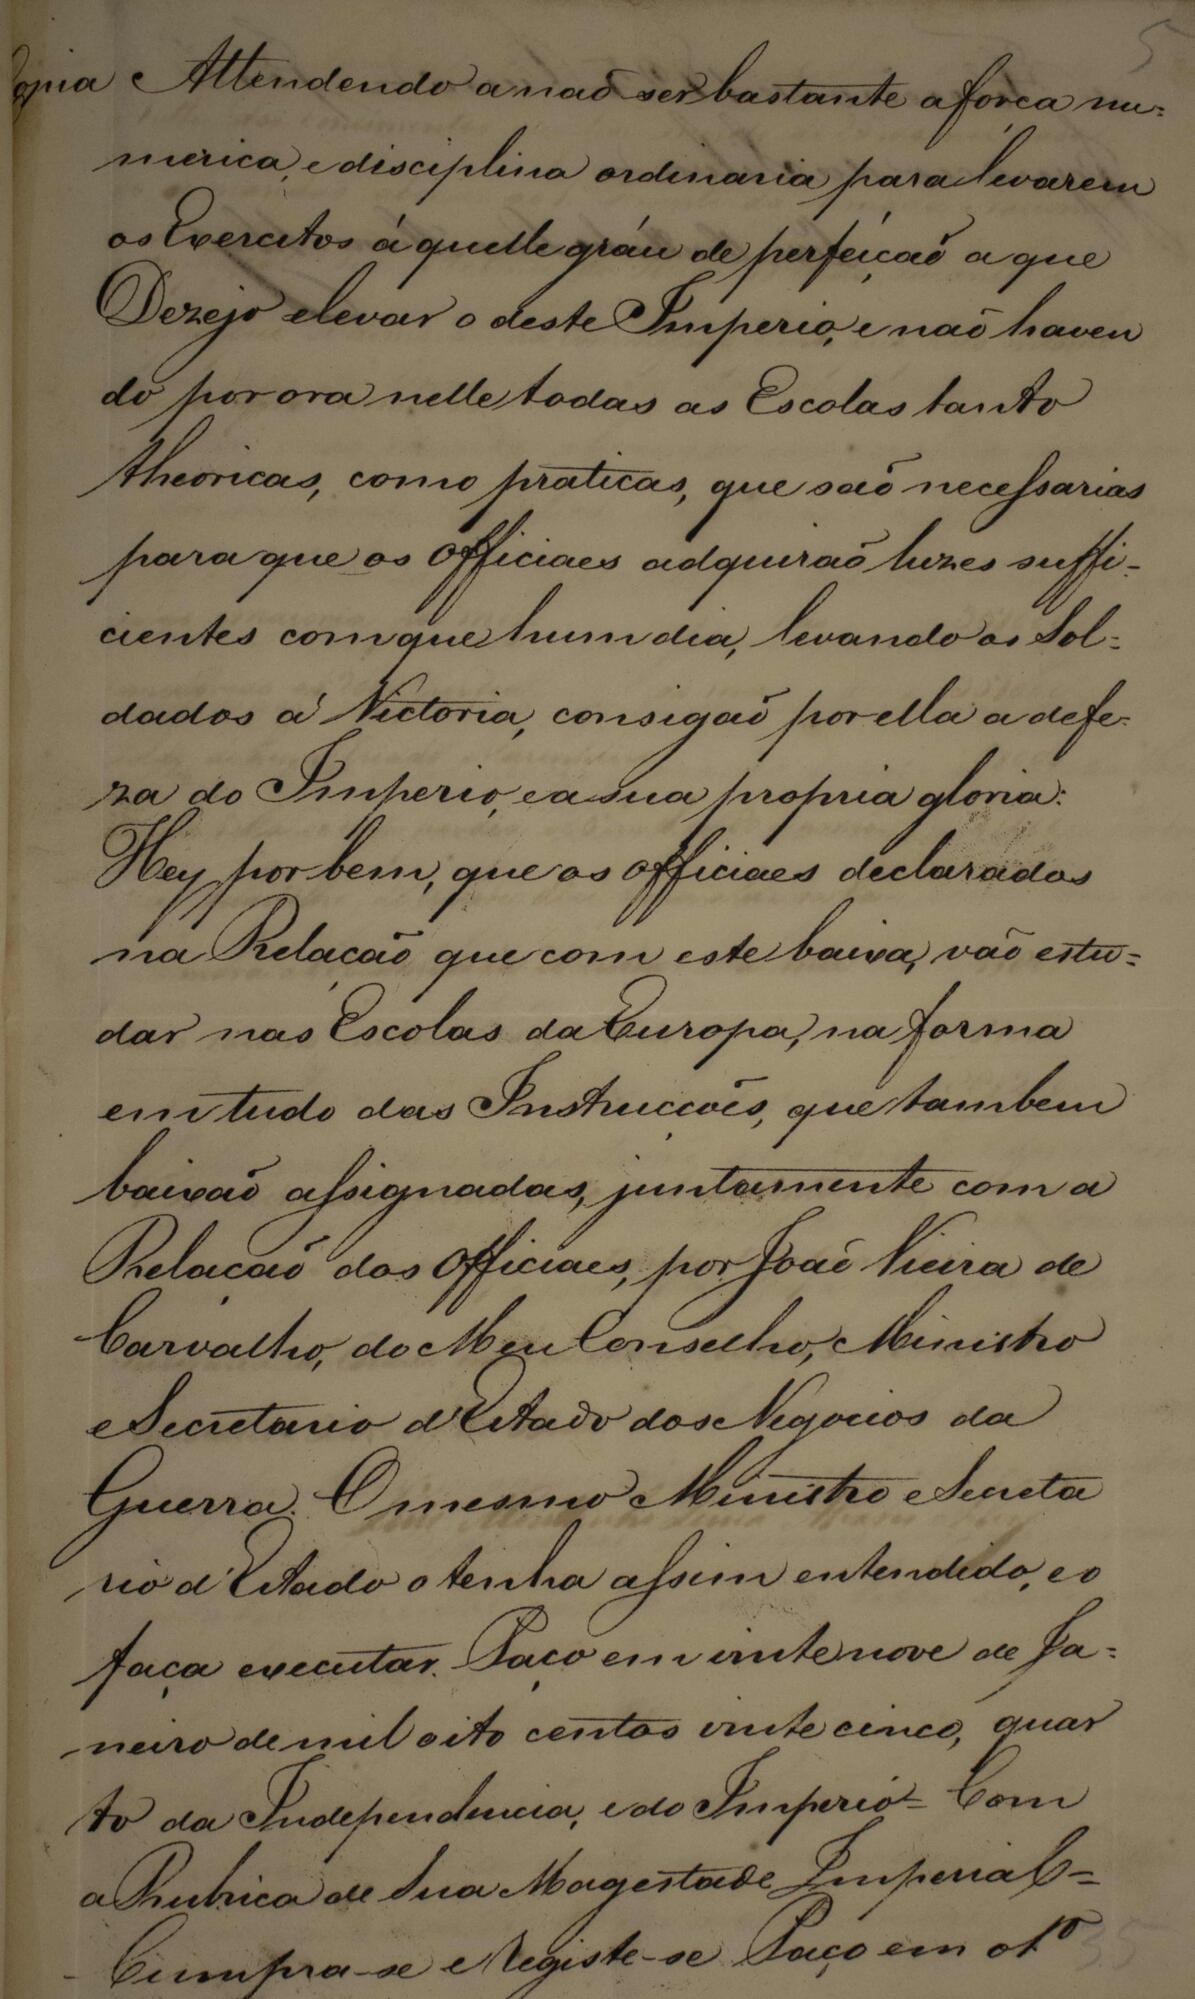 5
Copia Attendendo a naõ ser bastante a força nu=
merica, e disciplina ordinaria para levarem
os Exercitos áquelle gráu de perfeiçaõ a que
Dezejo elevar o deste Imperio, e naõ haven
do por ora nelle todas as Escolas tanto
theoricas, como praticas, que saõ necessarias
para que os Officiaes adquiraõ luzes suffi-
cientes com que hum dia, levando os Sol=
dados á Victoria, consigaõ por ella a defe-
za do Imperio, e a sua propria gloria:
Hey por bem, que os officiaes declarados
na Relaçaõ que com este baixa, vaõ estu=
dar nas Escolas da Europa, na forma
em tudo das Instrucçoẽs, que tambem
baixaõ assignadas, juntamente com a
Relaçaõ dos Officiaes, por Joaõ Vieira de
Carvalho, do Meu Conselho, Ministro
e Secretario d'Estado dos Negocios da
Guerra. O mesmo Ministro e Secreta
rio d'Estado o tenha assim entendido, e o
faça executar. Paço em vinte nove de Ja=
neiro de mil oito centos vinte cinco, quar
to da Independencia, e do Imperio = Com
a Rubrica de Sua Magestade Imperial =
Cumpra-se e Registe-se Paço em o 1º
35